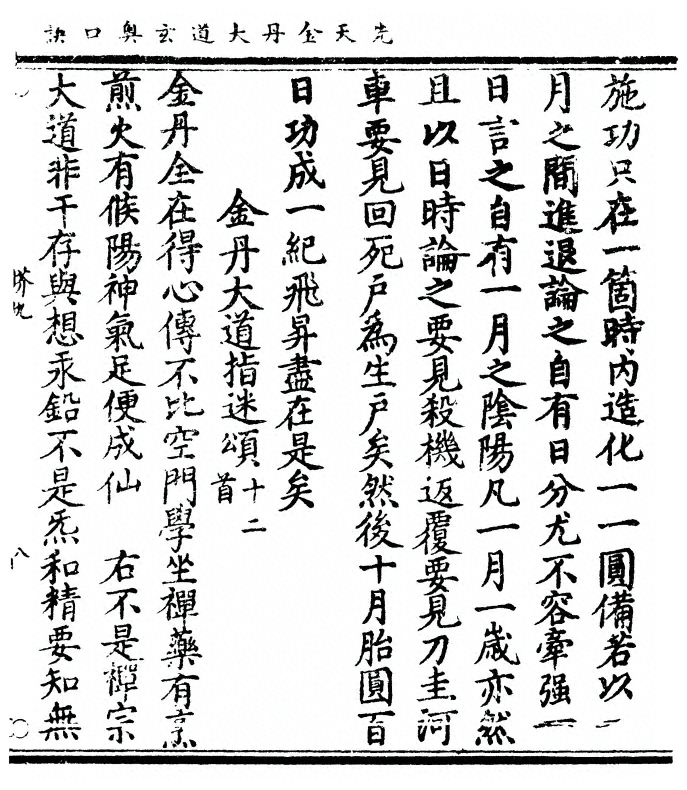 先天金丹大道玄奥口訣
施功只在一箇時内造化一一圓備若以一
月之間進退論之自有日分尤不容牽强一
日言之自有一月之陰陽凡一月一歲亦然
且以日時論之要見殺機返覆要見刀圭河
車要見回死戶為生戶矣然後十月胎圓百
日功成一紀飛昇盡在是矣
金丹大道指迷頌十二首
金丹全在得心傳不比空門學坐禪藥有烹
煎火有候陽神氣足便成仙 右不是禪宗
大道非干存與想汞鉛不是炁和精要知無
八